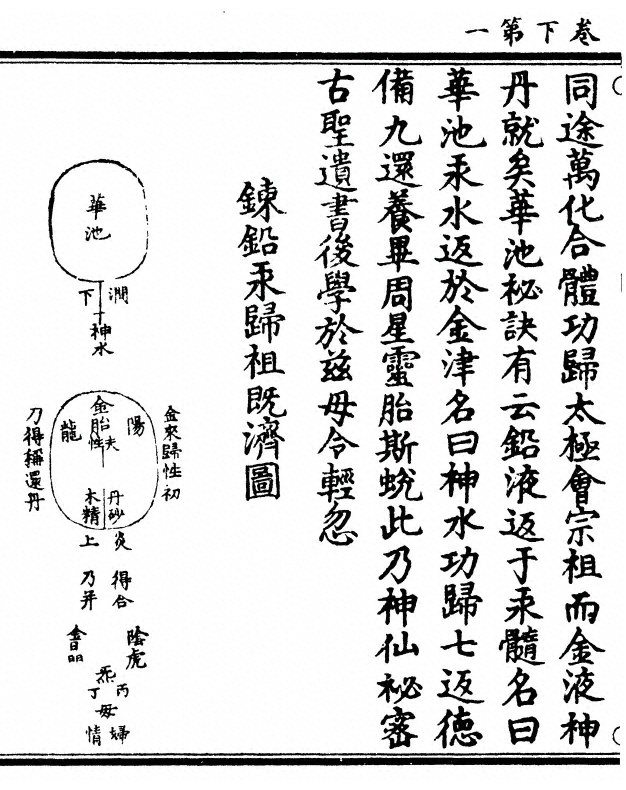 卷下第一
同途萬化合體功歸太極會宗祖而金液神
丹就矣華池祕訣有云鉛液返于汞髓名曰
華池汞水返於金津名曰神水功歸七返德
備九還養畢周星靈胎斯蛻此乃神仙祕密
古聖遺書後學於兹毋令輕忽
鍊鉛汞歸祖既濟圖
華池
澗下
神水
金來歸性初
陽
金胎
夫性
龍
丹砂
木精
刀得稱還丹
炎上
得合
乃并
陰虎
金晶
炁
丙丁
母
婦情